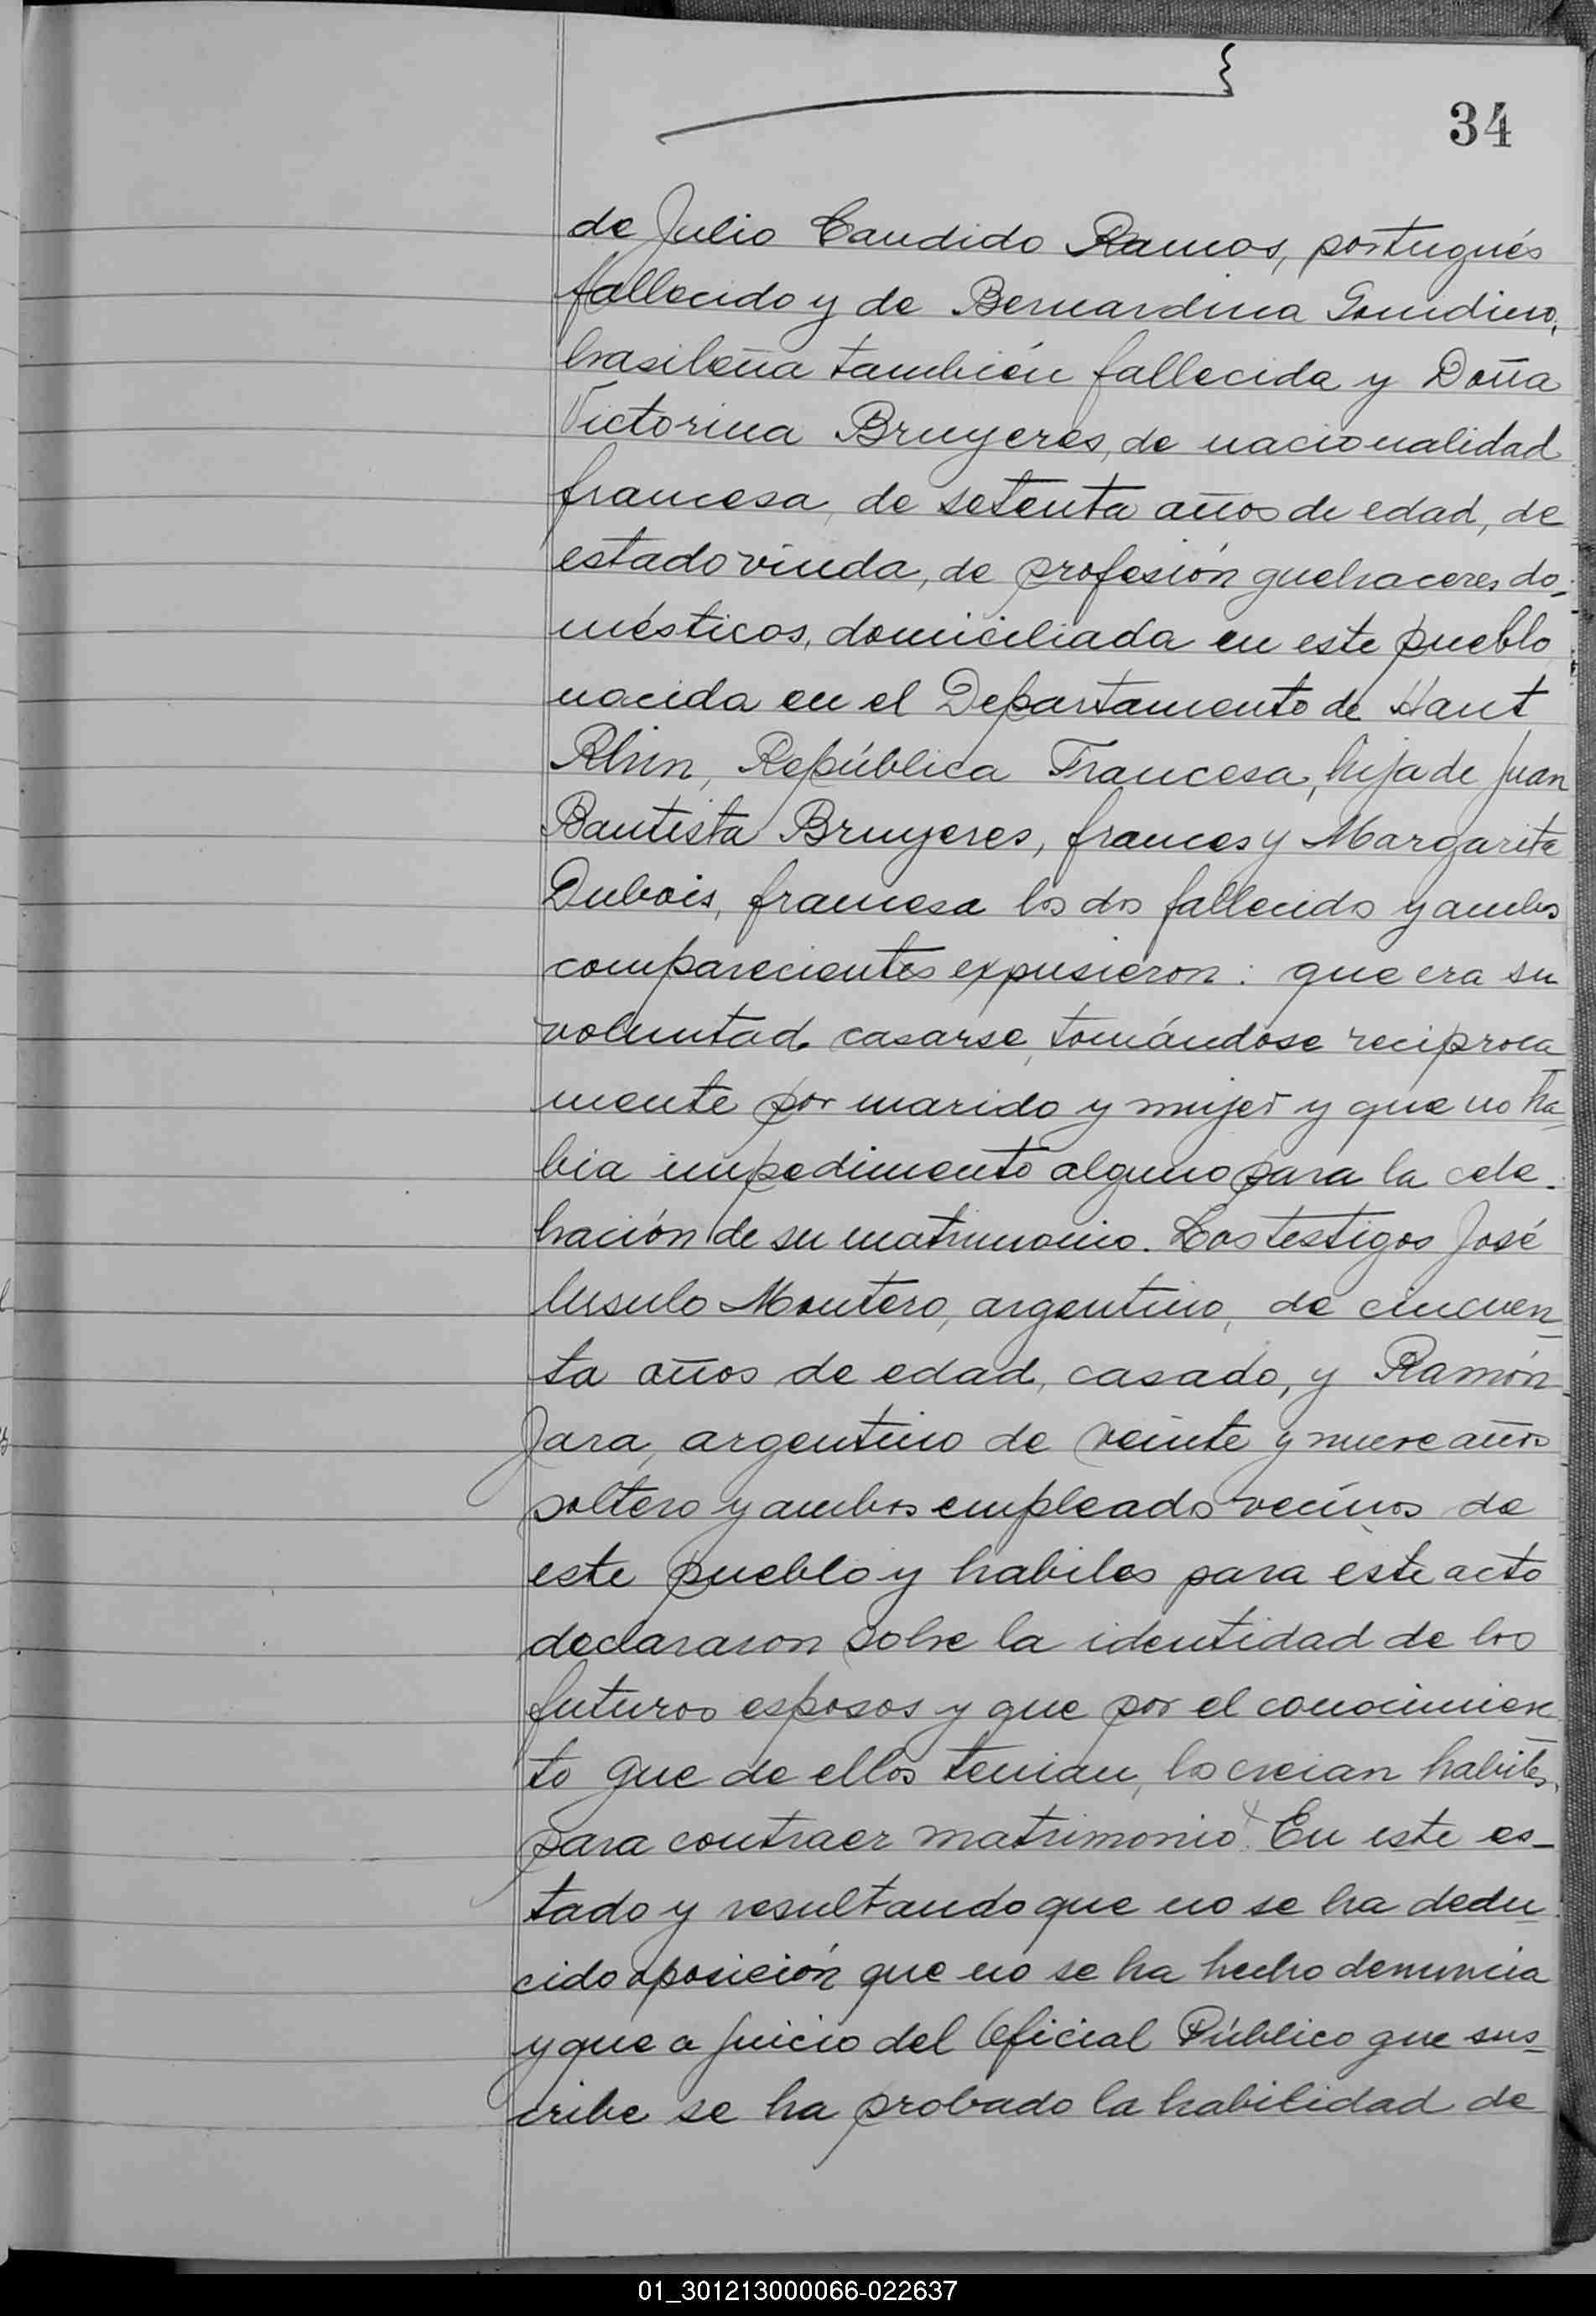 34
de Julio Candido Ramos, portugués
fallecido y de Bernardina Gondino,
brasileña también fallecida y Doña
Victorina Bruyeres, de nacionalidad
francesa, de setenta años de edad, de
estado viuda, de profesión quehaceres do-
mésticos, domiciliada en este pueblo
nacida en el Departamento de Haut
Rhin, República Francesa, hija de Juan
Bautista Bruyeres, frances y Margarita
Dubois, francesa los dos fallecidos y ambos
comparecientes expusieron: que era su
voluntad casarse, tomándose reciproca
mente por marido y mujer y que no ha-
bia impedimento alguno para la cele-
bración de su matrimonio. Los testigos José
Ursulo Montero, argentino, de cincuen-
ta años de edad, casado, y Ramón
Jara, argentino de veinte y nueve años
soltero y ambos empleados vecinos de
este pueblo y habiles para este acto
declararon sobre la identidad de los
futuros esposos y que por el conocimien-
to que de ellos tenian, los creian habiles,
para contraer matrimonio. En este es-
tado y resultando que no se ha dedu-
cido oposición que no se ha hecho denuncia
y que a juicio del Oficial Público que sus-
cribe se ha probado la habilidad de
01_301213000066-022637